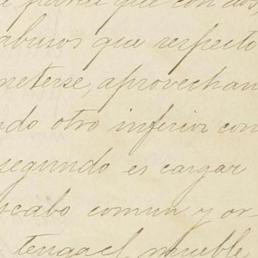 que con
abusos que respecto
meterse, aprovechan
ndo otro inferior con
segundo es cargar
scabo comun y or-
tenga el mueble